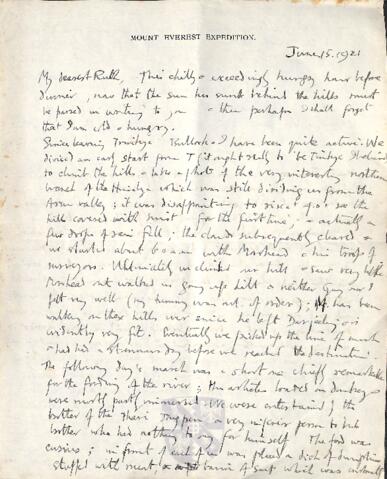 MOUNT EVEREST EXPEDITION.
June 15. 1921
My dearest Ruth, This chilly & exceedingly hungry hour before
dinner, now that the sun has sunk behind the hills must
be passed in writing to you & then perhaps I shall forget
that I am cold & hungry.
Since leaving Bullock & I have been quite active. We
devised an early start from T (it ought really to be
to climb the hill & take a photo of the very interesting northern
which was still dividing us from the
Arun valley; it was disappointing to rise at 4.0 & see the
hills covered with mist for the first time, & actually a
few drops of rain fell; the clouds subsequently cleared &
we started about 6 a.m. with Morshead & his troop of
surveyors. Ultimately we climbed our hill & saw very little
Morshead out walked us going up hill & neither Guy nor I
felt very well (my tummy was out of order); M. has been
walking on these hills ever since he left Darjeeling & is
evidently very fit. Eventually we picked up the line of march
& had a day before we reached the destination.
The following day's march was a short one chiefly remarkable
for the fording of the river; the whole on donkeys
were mostly partly immersed. We were entertained by the
brother of the a very person to
brother who had nothing to say for himself. The food was
curious; in front of each of us was placed a dish of dumplings
stuffed with meat, & a of soup which was